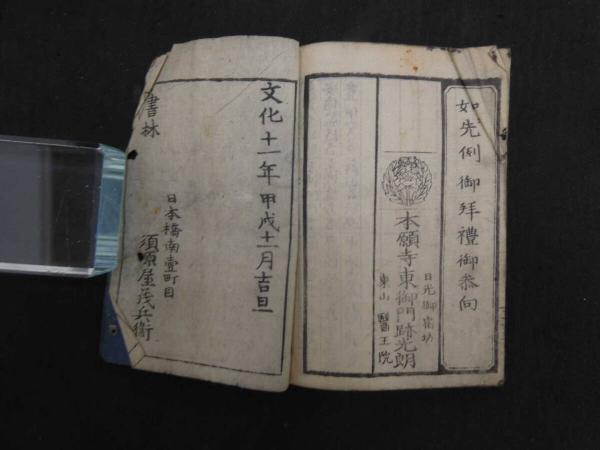 如先例御拜禮御参向
日光御宿坊
本願寺東御門跡光朗
東山醫王院
文化十一年甲戌十一月吉旦
日本橋南壹町目
須原屋茂兵衛
書林